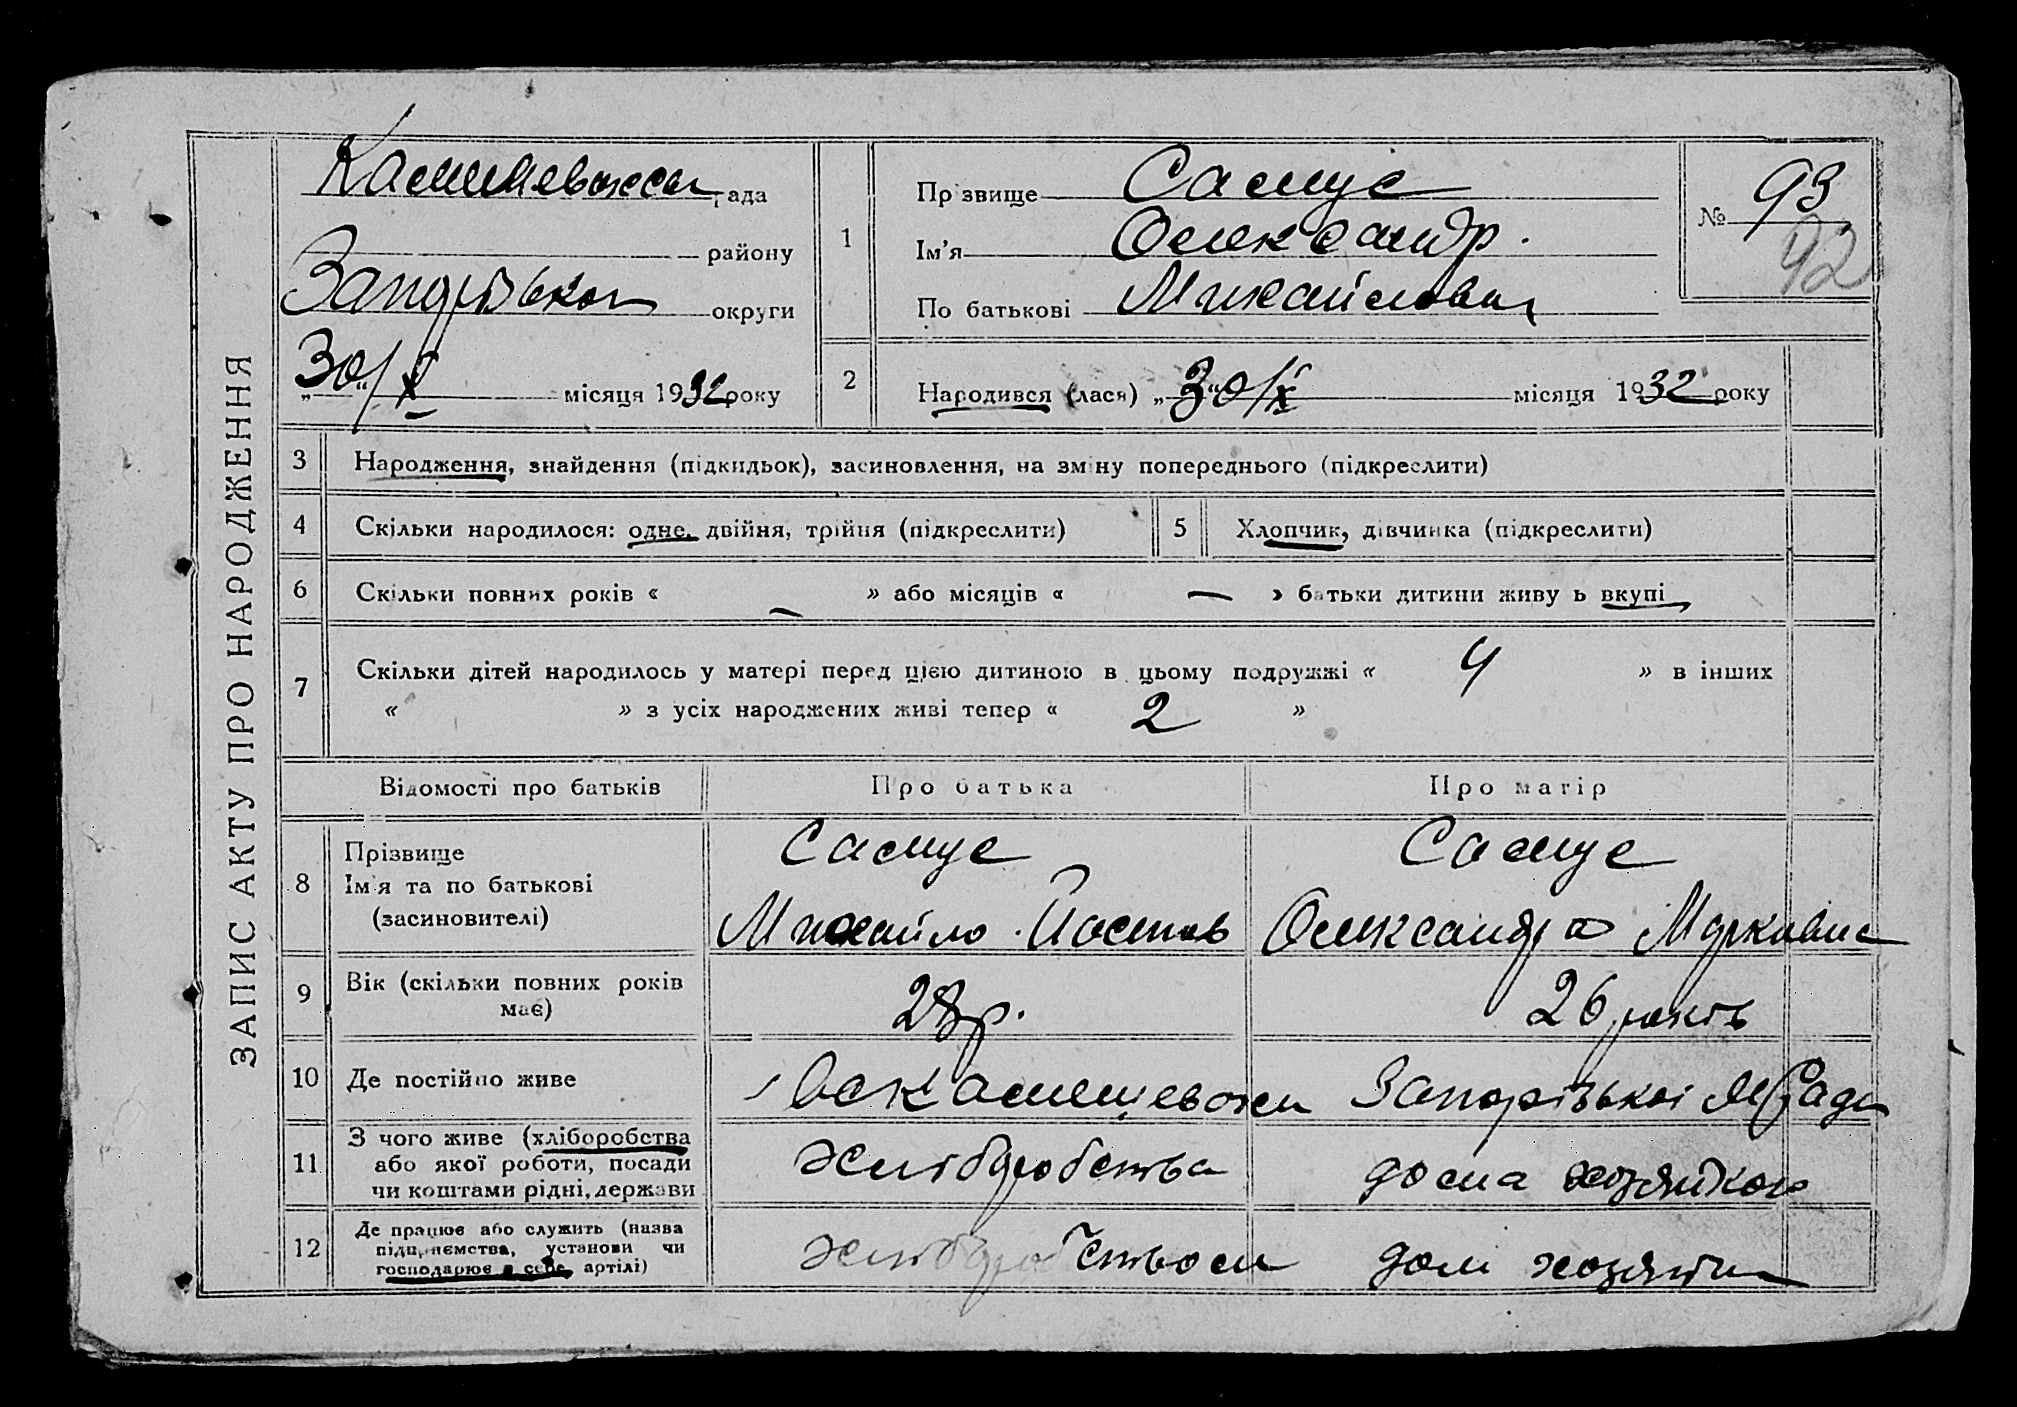 ЗАПИС АКТУ ПРО НАРОДЖЕННЯ
рада
району
Запорізької округи
30/X місяця 1932 року
1
Прізвище Самус
Ім'я Олександр.
По батькові Михайлович
№ 93
92
2
Народився (лася) „30/X місяця 1932 року
3 Народження, знайдення (підкидьок), засиновлення, на зміну попереднього (підкреслити)
4 Скільки народилося: одне, двійня, трійня (підкреслити)
5 Хлопчик, дівчинка (підкреслити)
6 Скільки повних років « — » або місяців « — » батьки дитини живуть вкупі
7 Скільки дітей народилось у матері перед цією дитиною в цьому подружжі « 4 » в інших
« » з усіх народжених живі тепер « 2 »
Відомості про батьків Про батька Про матір
8 Прізвище
Ім'я та по батькові
(засиновителі)
Самус
Михайло
Самус
Олександра
9 Вік (скільки повних років
має)
28 р.
26 років
10 Де постійно живе
Запорізької М/Ради
11 З чого живе (хліборобства
або якої роботи, посади
чи коштами рідні, держави
хліборобства
дома хозяйкою
12 Де працює або служить (назва
підприємства, установи чи
господарює в себе, артілі)
хліборобством
домі